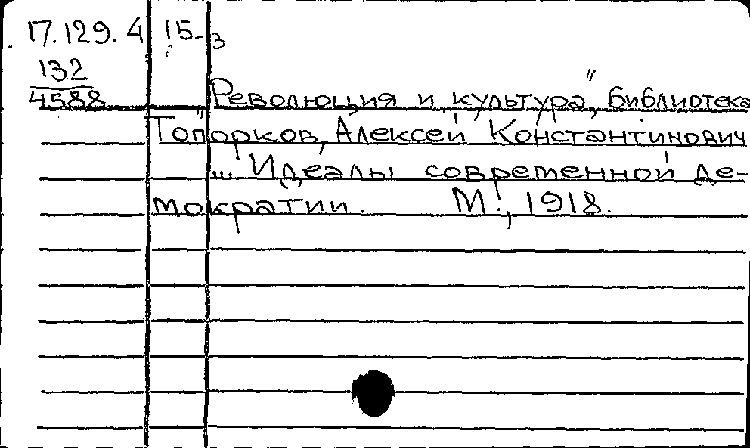 17.129.4 15-3
132
4588
"Революция и культура", библиотека
Топорков, Алексей Константинович
... Идеалы современной де-
мократии. М., 1918.